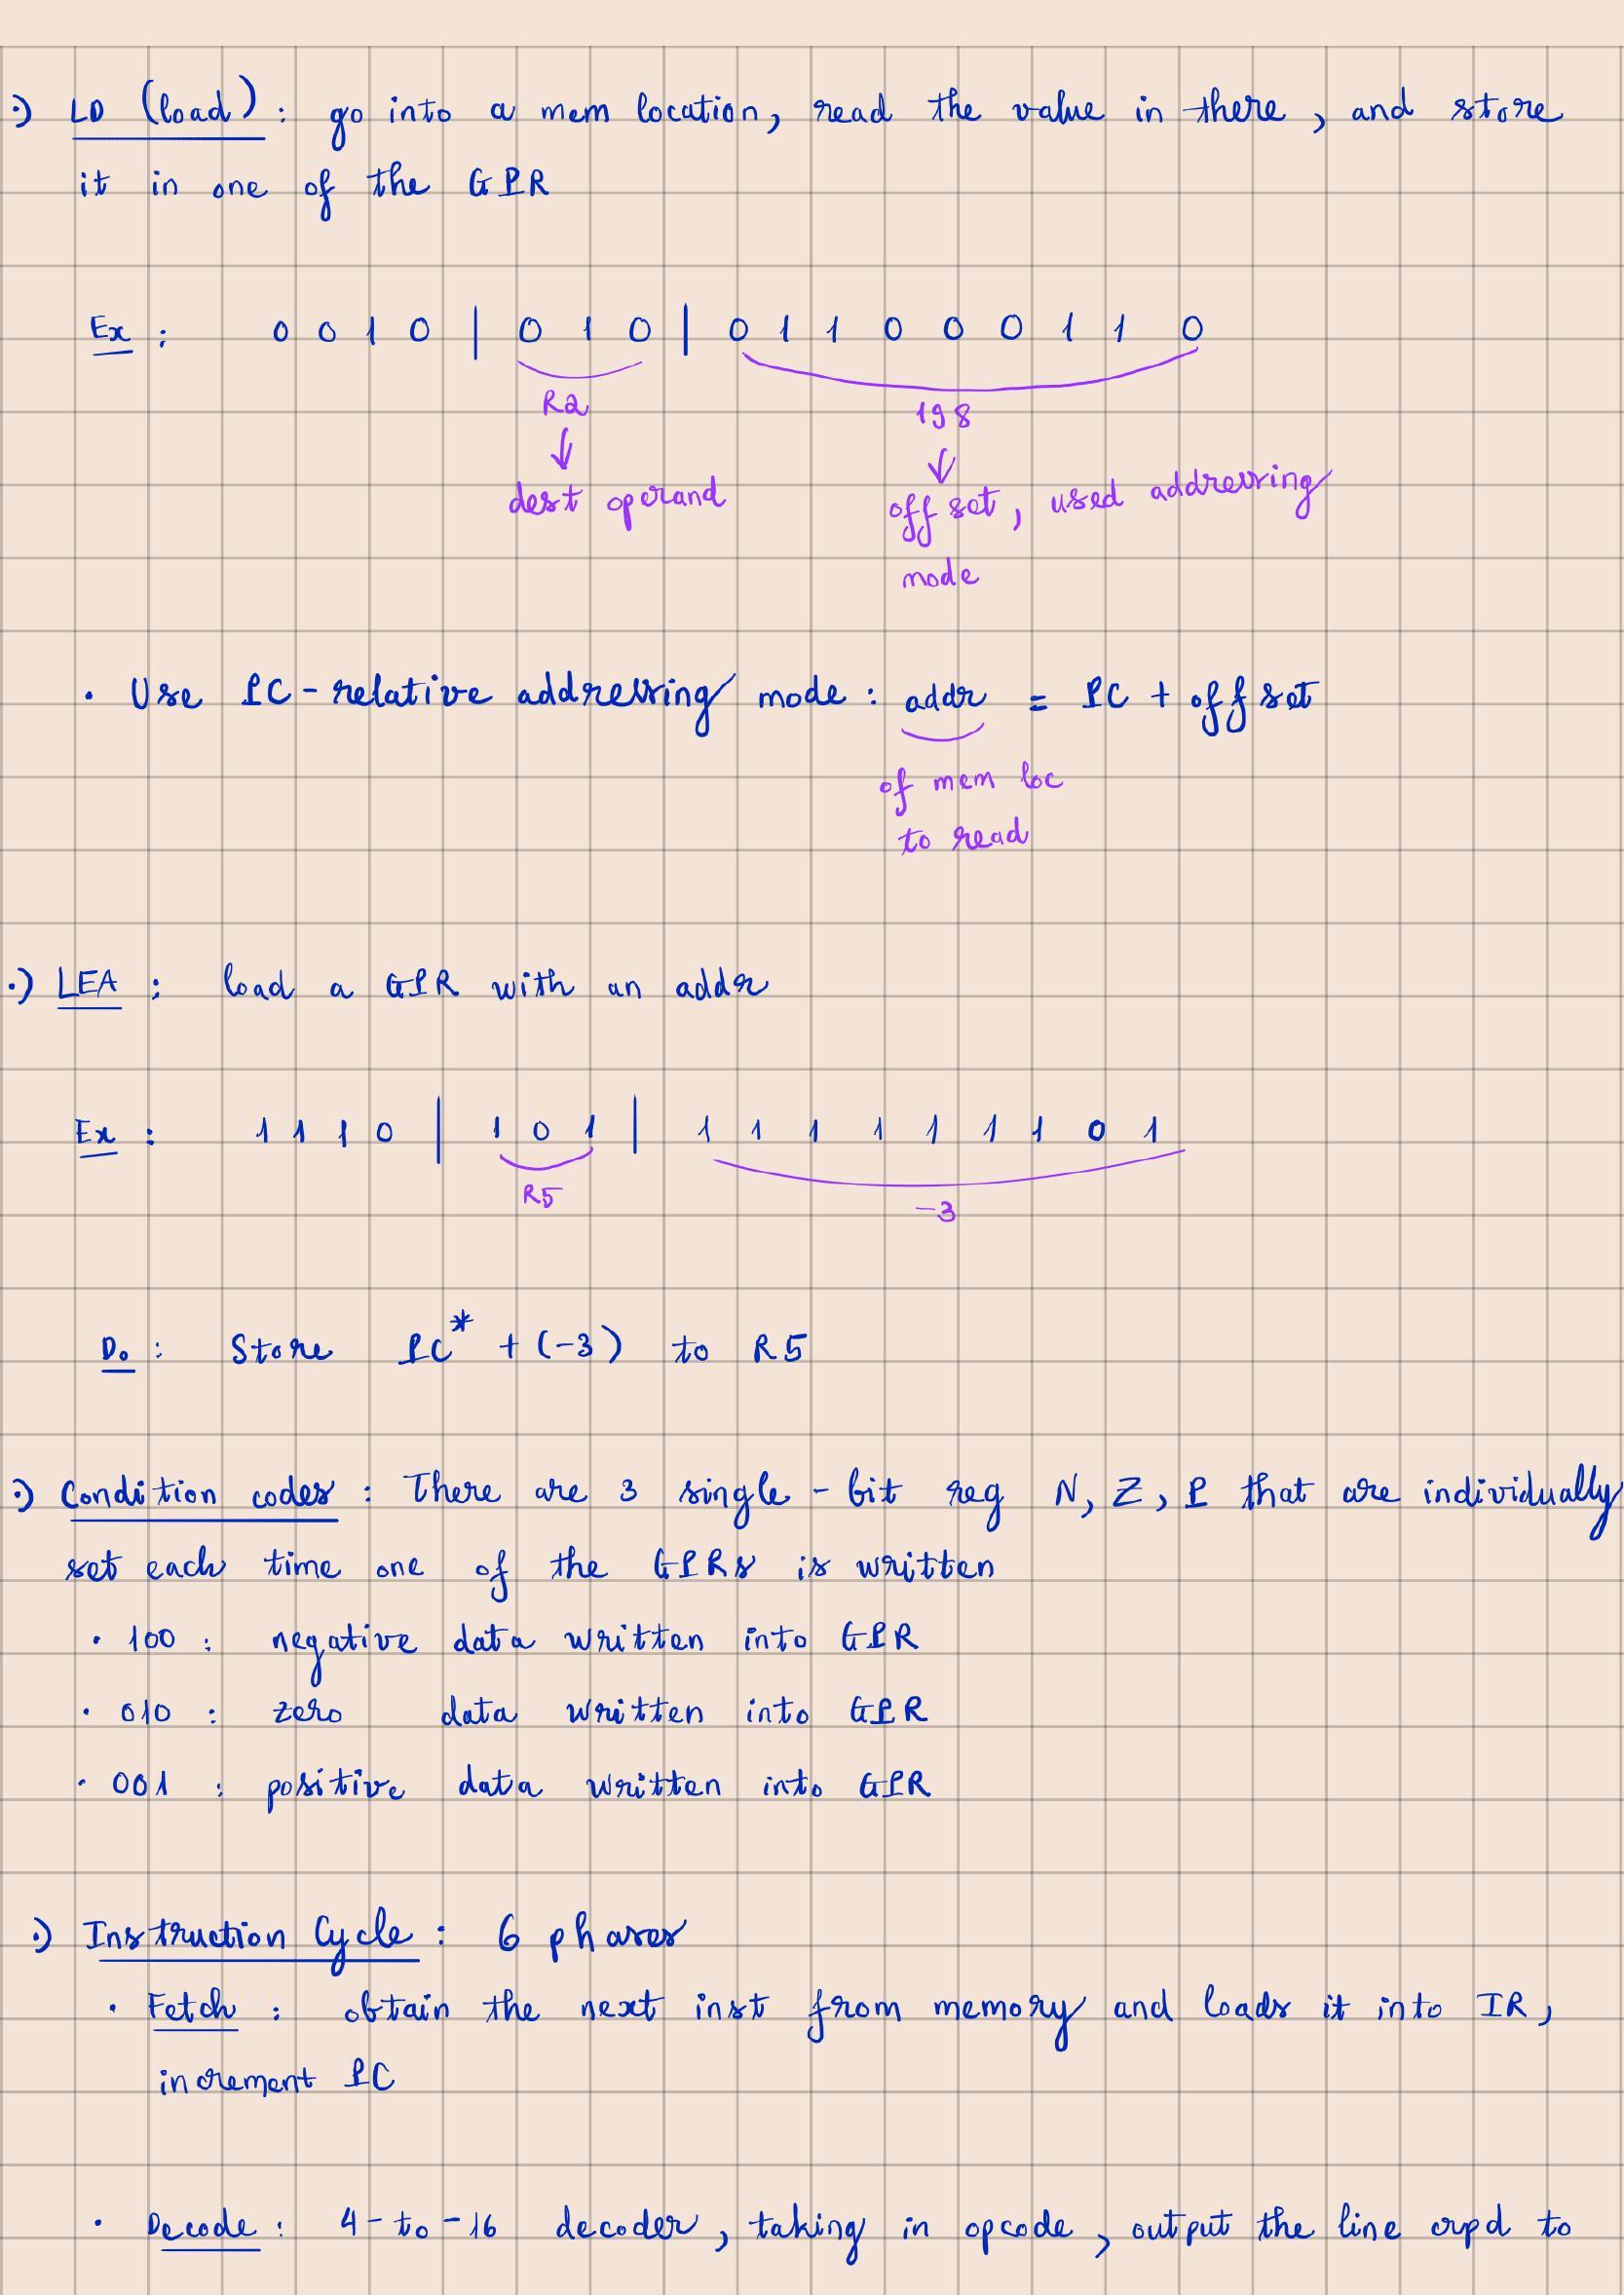 ·) LD (load) : go into a mem location, read the value in there, and store
it in one of the GPR
Ex : 0 0 1 0 | 0 1 0 | 0 1 1 0 0 0 1 1 0
R2 198
↓ ↓
dest operand offset, used addressing
mode
· Use PC-relative addressing mode : addr = PC + offset
of mem loc
to read
·) LEA : load a GPR with an addr
Ex : 1 1 1 0 | 1 0 1 | 1 1 1 1 1 1 1 0 1
R5 -3
Do : Store PC* + (-3) to R5
·) Condition codes : There are 3 single-bit reg N, Z, P that are individually
set each time one of the GPRs is written
· 100 : negative data written into GPR
· 010 : zero data written into GPR
· 001 : positive data written into GPR
·) Instruction Cycle : 6 phases
· Fetch : obtain the next inst from memory and loads it into IR,
increment PC
· Decode : 4-to-16 decoder, taking in opcode, output the line crpd to